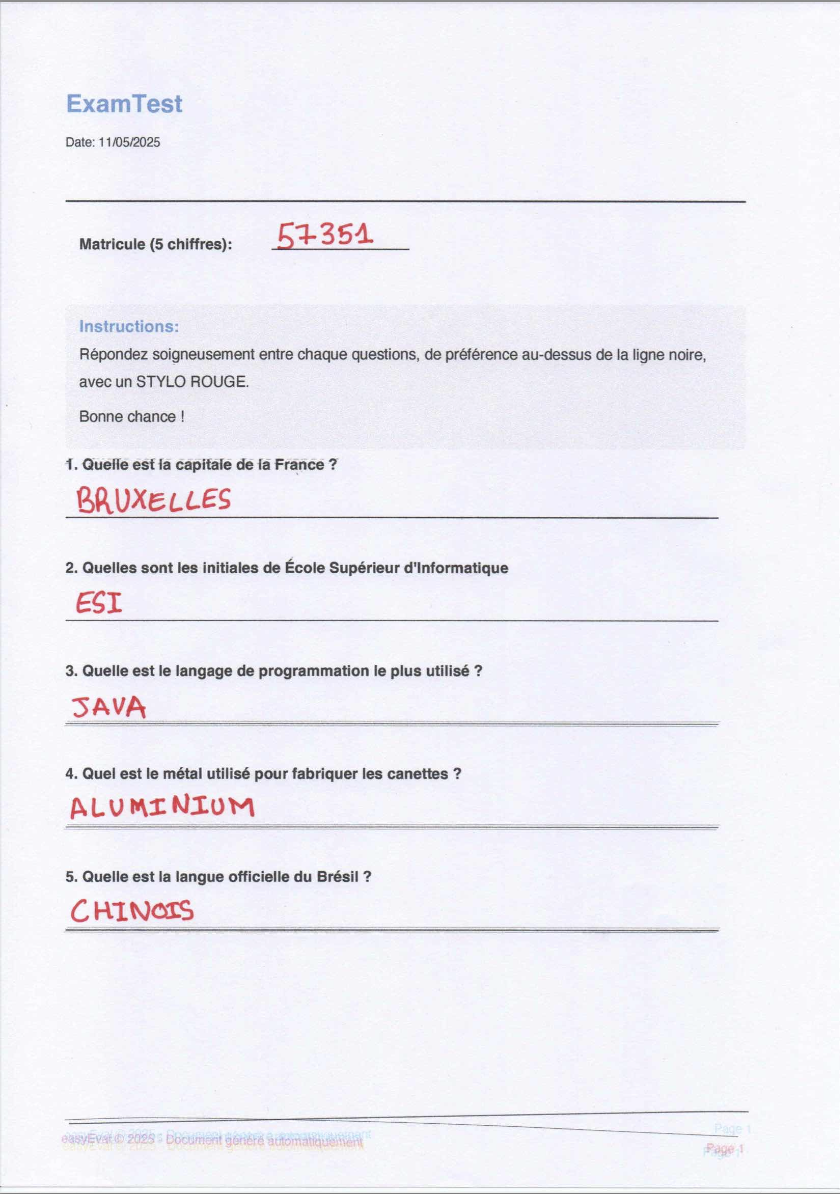 ExamTest
Date: 11/05/2025
Matricule (5 chiffres): 57351
Instructions:
Répondez soigneusement entre chaque questions, de préférence au-dessus de la ligne noire,
avec un STYLO ROUGE.
Bonne chance !
1. Quelle est la capitale de la France ?
BRUXELLES
2. Quelles sont les initiales de École Supérieur d'Informatique
ESI
3. Quelle est le langage de programmation le plus utilisé ?
JAVA
4. Quel est le métal utilisé pour fabriquer les canettes ?
ALUMINIUM
5. Quelle est la langue officielle du Brésil ?
CHINOIS
Page 1
easyEval © 2025 - Document généré automatiquement
Page 1